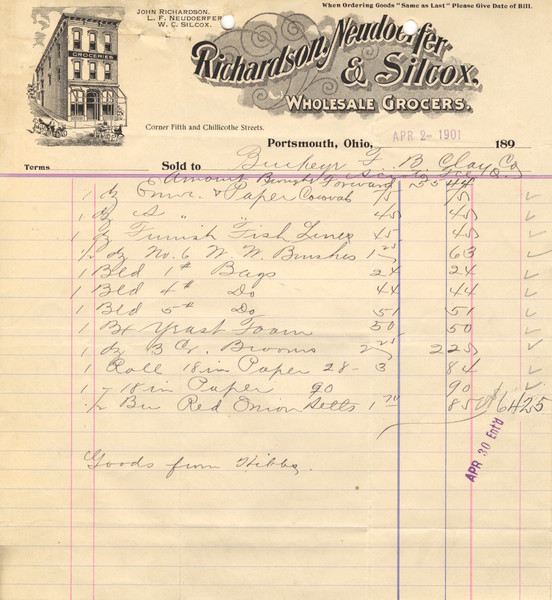 When Ordering Goods "Same as Last" Please Give Date of Bill.
JOHN RICHARDSON.
L. F. NEUDOERFER
W. C. SILCOX.
GROCERIES
Richardson, Neudoerfer
& Silcox.
WHOLESALE GROCERS.
Corner Fifth and Chillicothe Streets.
Portsmouth, Ohio, APR 2- 1901 189
Terms Sold to Buckeye F. B Clay Co
Amount Brought Forward 55 44
1 dz Envr. & Paper 15 15
1 dz S " " 45 45
1 dz Furnish Fish Lines 45 45
1/2 dz No. 6 W. W. Brushes 1 25 63
1 Bld 1# Bags 24 24
1 Bld 4# Do 44 44
1 Bld 5# Do 51 51
1 Bx Yeast Foam 50 50
1 dz B Cr. Brooms 2 25 2 25
1 Roll 18 in Paper 28 - 3 84
1 - 18 in Paper 90 90
1/2 Bu Red Onion Setts 1 70 85 $64 25
APR 30 Ent'd
Goods from Hibbs.